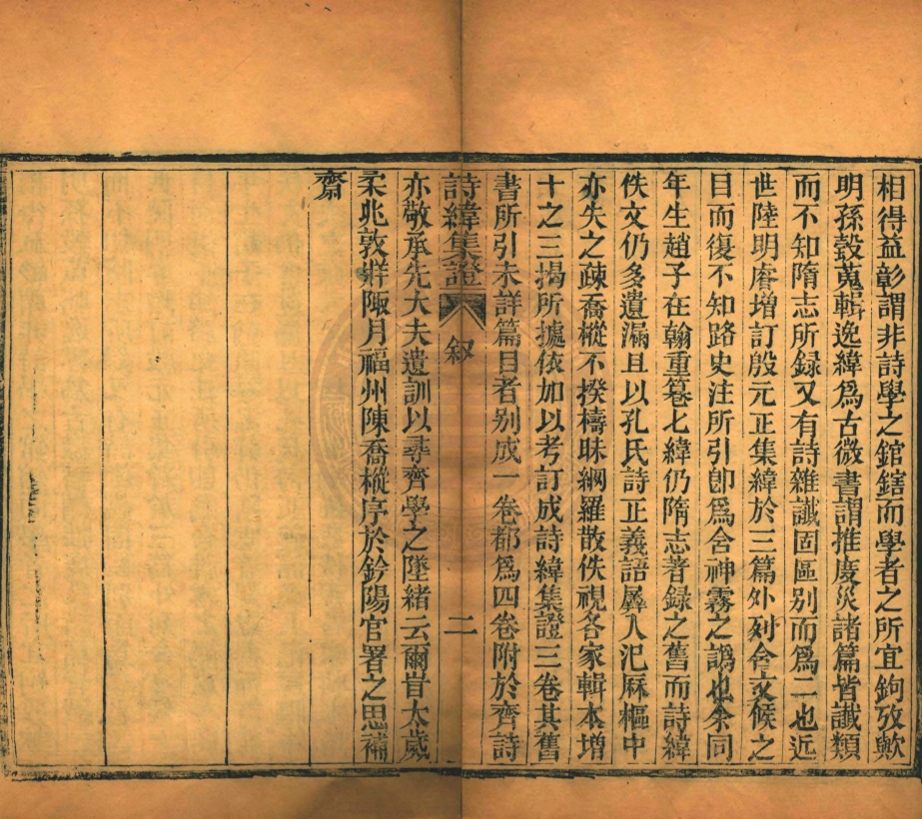 相得益彰謂非詩學之錧鎋而學者之所宜鉤攷歟
明孫瑴蒐輯逸緯爲古微書謂推度災諸篇皆讖類
而不知隋志所録又有詩雜讖固區别而爲二也近
世陸明睿增訂殷元正集緯於三篇外列含文候之
目而復不知路史注所引卽爲含神霧之譌也余同
年生趙子在翰重纂七緯仍隋志著録之舊而詩緯
佚文仍多遺漏且以孔氏詩正義語羼入汜厤樞中
亦失之疎喬樅不揆檮昧綱羅散佚視各家輯本增
十之三揭所據依加以考訂成詩緯集證三卷其舊
書所引未詳篇目者别成一卷都爲四卷附於齊詩
詩緯集證 叙 二
亦敬承先大夫遺訓以尋齊學之墜緒云爾旹太歲
柔兆敦牂陬月福州陳喬樅序於鈐陽官署之思補
齋